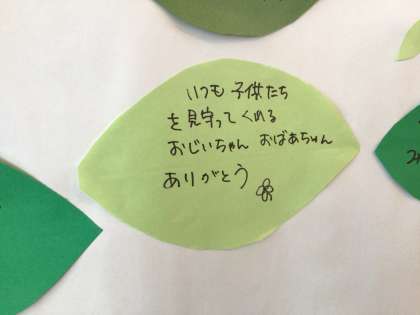 いつも子供たち
を見守ってくれる
おじいちゃん おばあちゃん
ありがとう